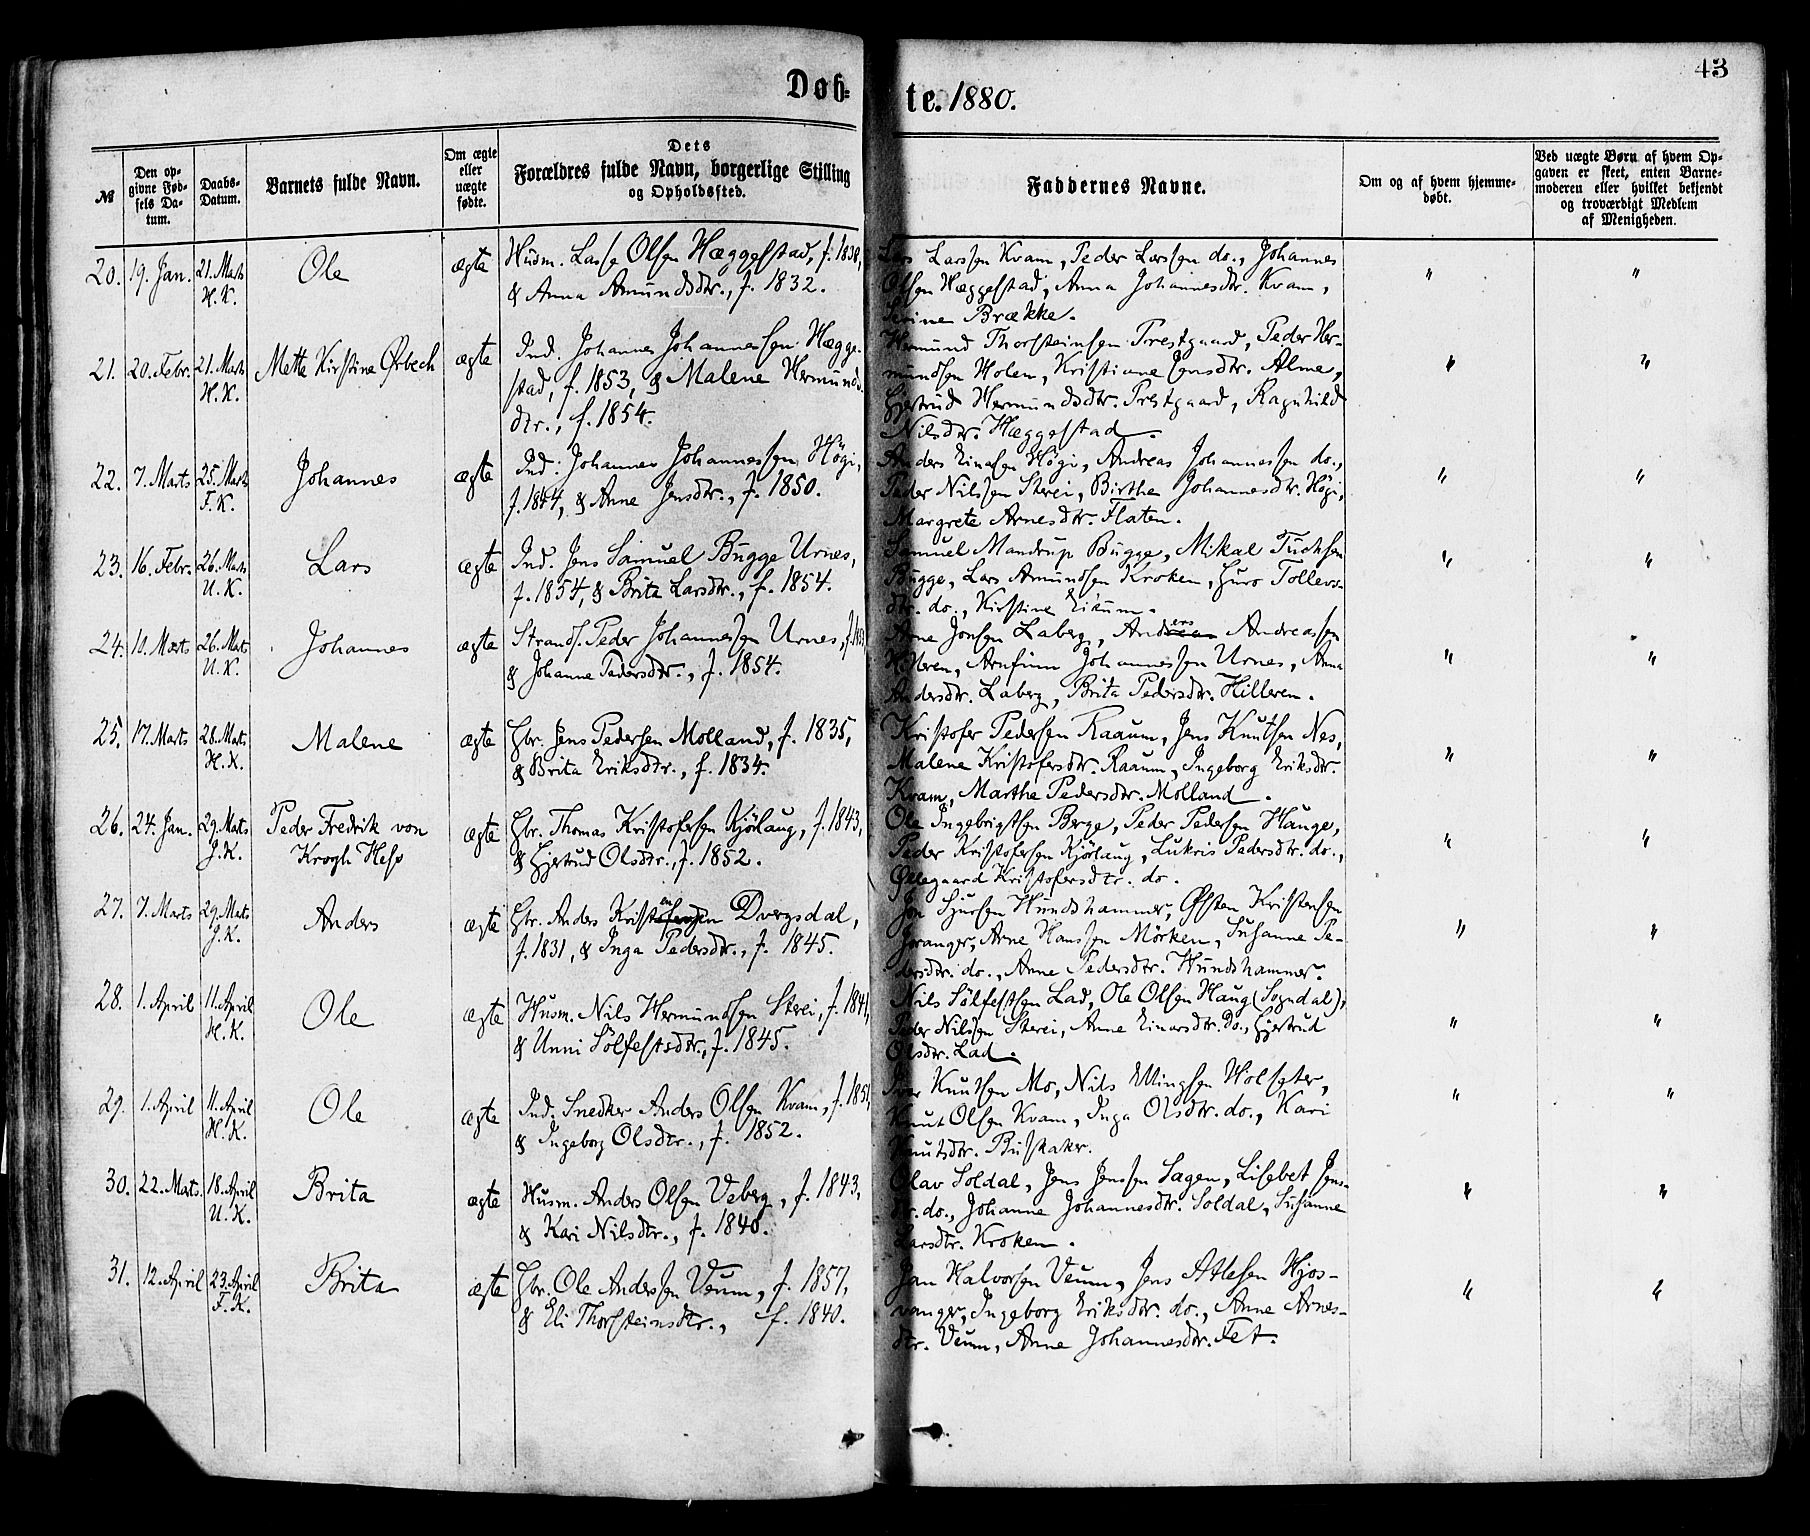 Døb-
te. 1880.
43
№
Den op-
givne Fød-
sels Da-
tum.
Daabs-
Datum.
Barnets fulde Navn.
Om ægte
eller
uægte
fødte.
Dets
Forældres fulde Navn, borgerlige Stilling
og Opholdssted.
Faddernes Navne.
Om og af hvem hjemme-
døbt.
Ved uægte Børn af hvem Op-
gaven er skeet, enten Barne-
moderen eller hvilket bekjendt
og troværdigt Medlem
af Menigheden.
20. 19. Jan. 21. Marts
H. K.
Ole
ægte
Husm. Lasse Olsen Hæggestad, f. 1838,
& Anna Amundsdtr., f. 1832.
Lars Larssen Kvam, Peder Larssen do., Johannes
Olsen Hæggestad, Anna Johannesdtr. Kvam,
Brække.
" "
21. 20. Febr. 21. Marts
H. K.
Mette Kirstine Ørbech
ægte
Ind. Johannes Johannessen Hægge-
stad, f. 1853, & Malene Hermunds-
dtr., f. 1854.
Hermund Thorsteinsen Prestgaard, Peder Her-
mundsen Holen, Kristiane Jensdtr. Alme,
Gjertrud Hermundsdtr. Prestgaard, Ragnhild
Nilsdtr. Hæggestad.
" "
22. 7. Marts 25. Marts
F. K.
Johannes
ægte
Ind. Johannes Johannessen Högi,
f. 1844, & Anne Jensdtr., f. 1850.
Anders Einesen Högi, Andreas Johannessen do.,
Peder Nilssen Sterei, Birthe Johannesdtr. Högi,
Margrete Arnesdtr. Flaten.
" "
23. 16. Febr. 26. Marts
U. K.
Lars
ægte
Ind. Jens Samuel Bugge Urnes,
f. 1854, & Brita Larsdtr., f. 1854.
Samuel Mandrup Bugge, Mikal Tuchsen
Bugge, Lars Amundsen Kroken, Guro Tollevs-
dtr. do., Kirstine Eikum.
" "
24. 10. Marts 26. Marts
U. K.
Johannes
ægte
Strands. Peder Johannessen Urnes,
& Johanne Pedersdtr., f. 1854.
Arne Jonsen Laberg, Anders Andreassen
Hilleren, Arnfinn Johannessen Urnes, Anna
Andersdtr. Laberg, Brita Pedersdtr. Hilleren.
" "
25. 17. Marts 28. Marts
H. K.
Malene
ægte
Gbr. Jens Pedersen Molland, f. 1835,
& Brita Eriksdtr., f. 1834.
Kristofer Pedersen Raaum, Jens Knutsen Nes,
Malene Kristofersdtr. Raaum, Ingeborg Eriksdtr.
Kvam, Marthe Pedersdtr. Molland.
" "
26. 24. Jan. 29. Marts
J. K.
Peder Fredrik von
Krogh Hess
ægte
Gbr. Thomas Kristofersen Kjörlaug, f. 1843,
& Gjertrud Olsdtr., f. 1852.
Ole Ingebrigtsen Berge, Peder Pedersen Hauge,
Peder Kristofersen Kjörlaug, Lukris Pedersdtr. do.,
Øllegaard Kristofersdtr. do.
" "
27. 7. Marts 29. Marts
J. K.
Anders
ægte
Gbr. Anders Kristensen Dvergsdal,
f. 1831, & Inga Pedersdtr., f. 1845.
Jon Sjursen Hundshammer, Østen Kristensen
Joranger, Arne Hanssen Mörken, Susanne Pe-
dersdtr. do., Anne Pedersdtr. Hundshammer.
" "
28. 1. April 11. April
H. K.
Ole
ægte
Husm. Nils Hermundsen Sterei, f. 1841,
& Unni Sölfestsdtr., f. 1845.
Nils Sölfestsen Lad, Ole Olsen Haug (Sogndal),
Peder Nilssen Sterei, Anne Einarsdtr. do., Gjertrud
Olsdtr. Lad.
" "
29. 1. April 11. April
H. K.
Ole
ægte
Ind. Snedker Anders Olsen Kvam, f. 1851,
& Ingeborg Olsdtr., f. 1852.
Iver Knutsen Mo, Nils Ellingsen Holseter,
Knut Olsen Kvam, Inga Olsdtr. do., Kari
Knutsdtr. Buskaker.
" "
30. 22. Marts. 18. April
U. K.
Brita
ægte
Husm. Anders Olsen Veberg, f. 1843,
& Kari Nilsdtr., f. 1846.
Olav Soldal, Jens Jenssen Sagen, Lisebet Jens-
dtr. do., Johanne Johannesdtr. Soldal, Susanne
Larsdtr. Kroken.
" "
31. 12. April 23. April
F. K.
Brita
ægte
Gbr. Ole Anderssen Veum, f. 1857,
& Eli Thorsteinsdtr., f. 1840.
Jan Halvorsen Veum, Jens Atlesen Hjos-
vanger, Ingeborg Eriksdtr. do., Anne Arnes-
dtr. Veum, Anne Johannesdtr. Fet.
" "